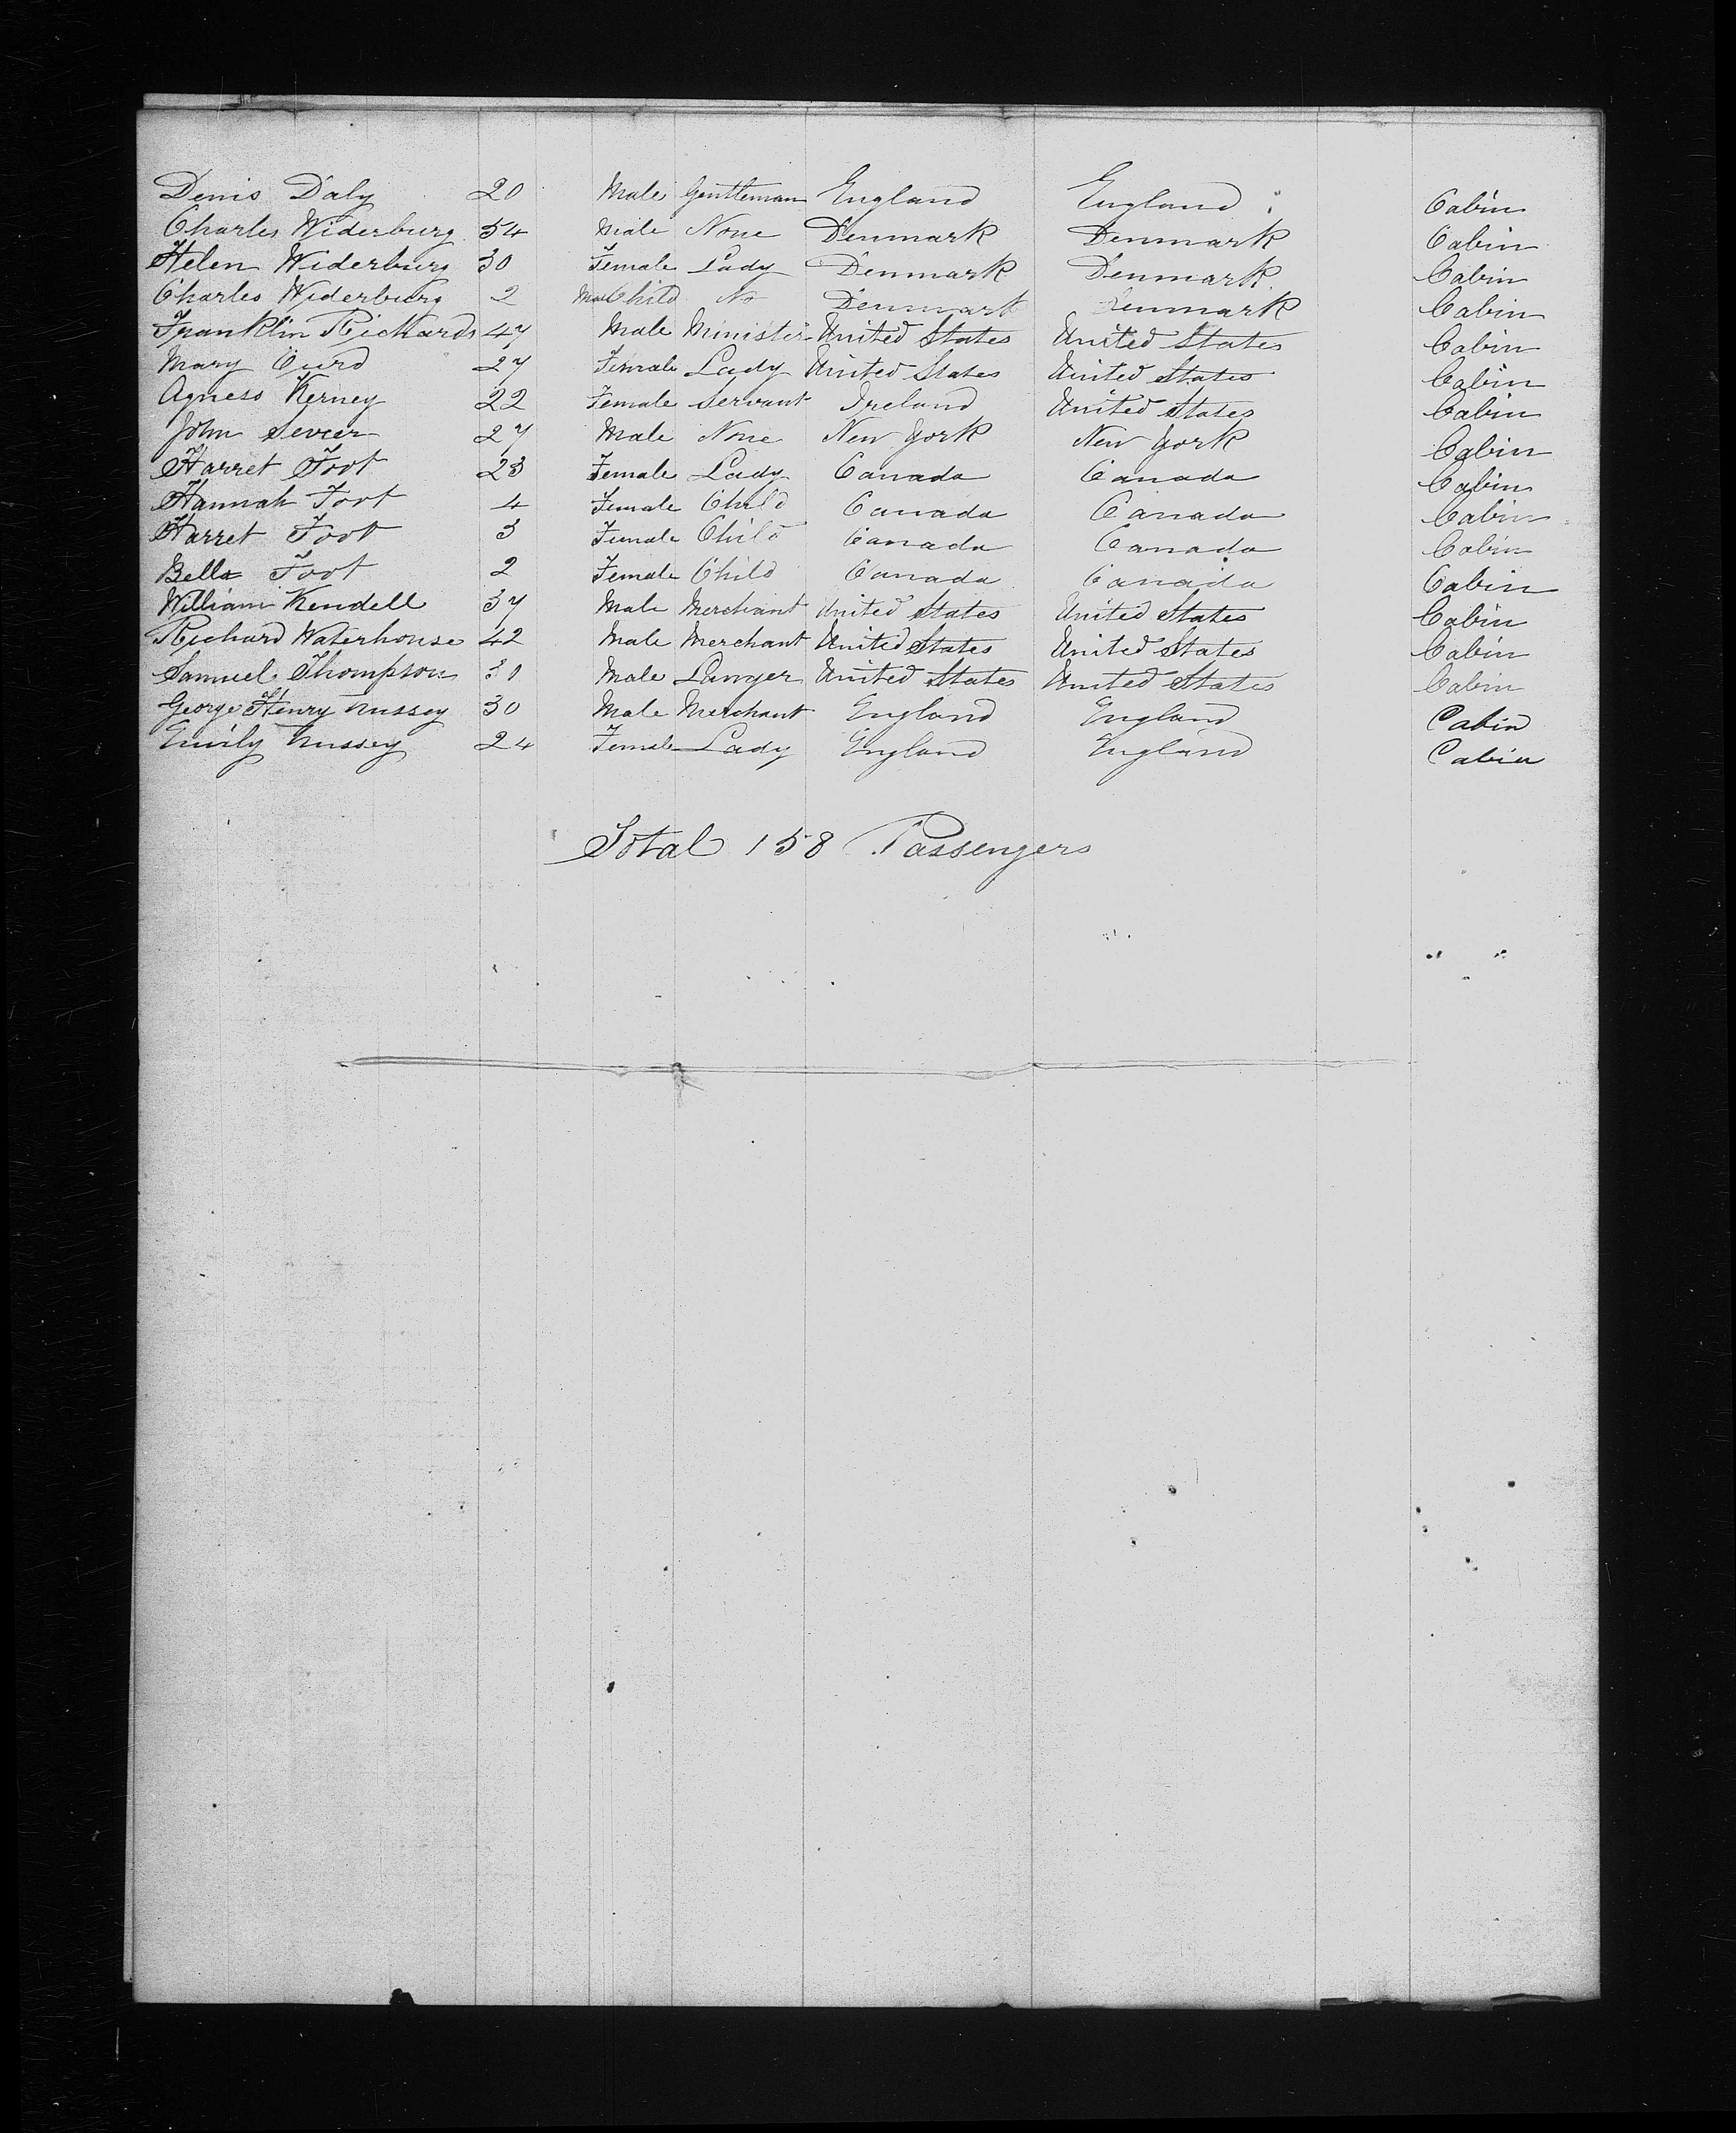 Denis Daly 20 Male Gentleman England England Cabin
Charles Widerburg 34 Male None Denmark Denmark Cabin
Helen Widerburg 30 Female Lady Denmark Denmark Cabin
Charles Widerburg 2 Male Child No Denmark Denmark Cabin
Franklin Richards 47 Male Minister United States United States Cabin
Mary Curd 27 Female Lady United States United States Cabin
Agness Kerney 22 Female Servant Ireland United States Cabin
John Sevier 27 Male None New York New York Cabin
Harret Foot 23 Female Lady Canada Canada Cabin
Hannah Foot 4 Female Child Canada Canada Cabin
Harret Foot 3 Female Child Canada Canada Cabin
Bella Foot 2 Female Child Canada Canada Cabin
William Kendell 37 Male Merchant United States United States Cabin
Richard Waterhouse 42 Male Merchant United States United States Cabin
Samuel Thompson 30 Male Lawyer United States United States Cabin
George Henry Nussey 30 Male Merchant England England Cabin
Emily Nussey 24 Female Lady England England Cabin
Total 158 Passengers